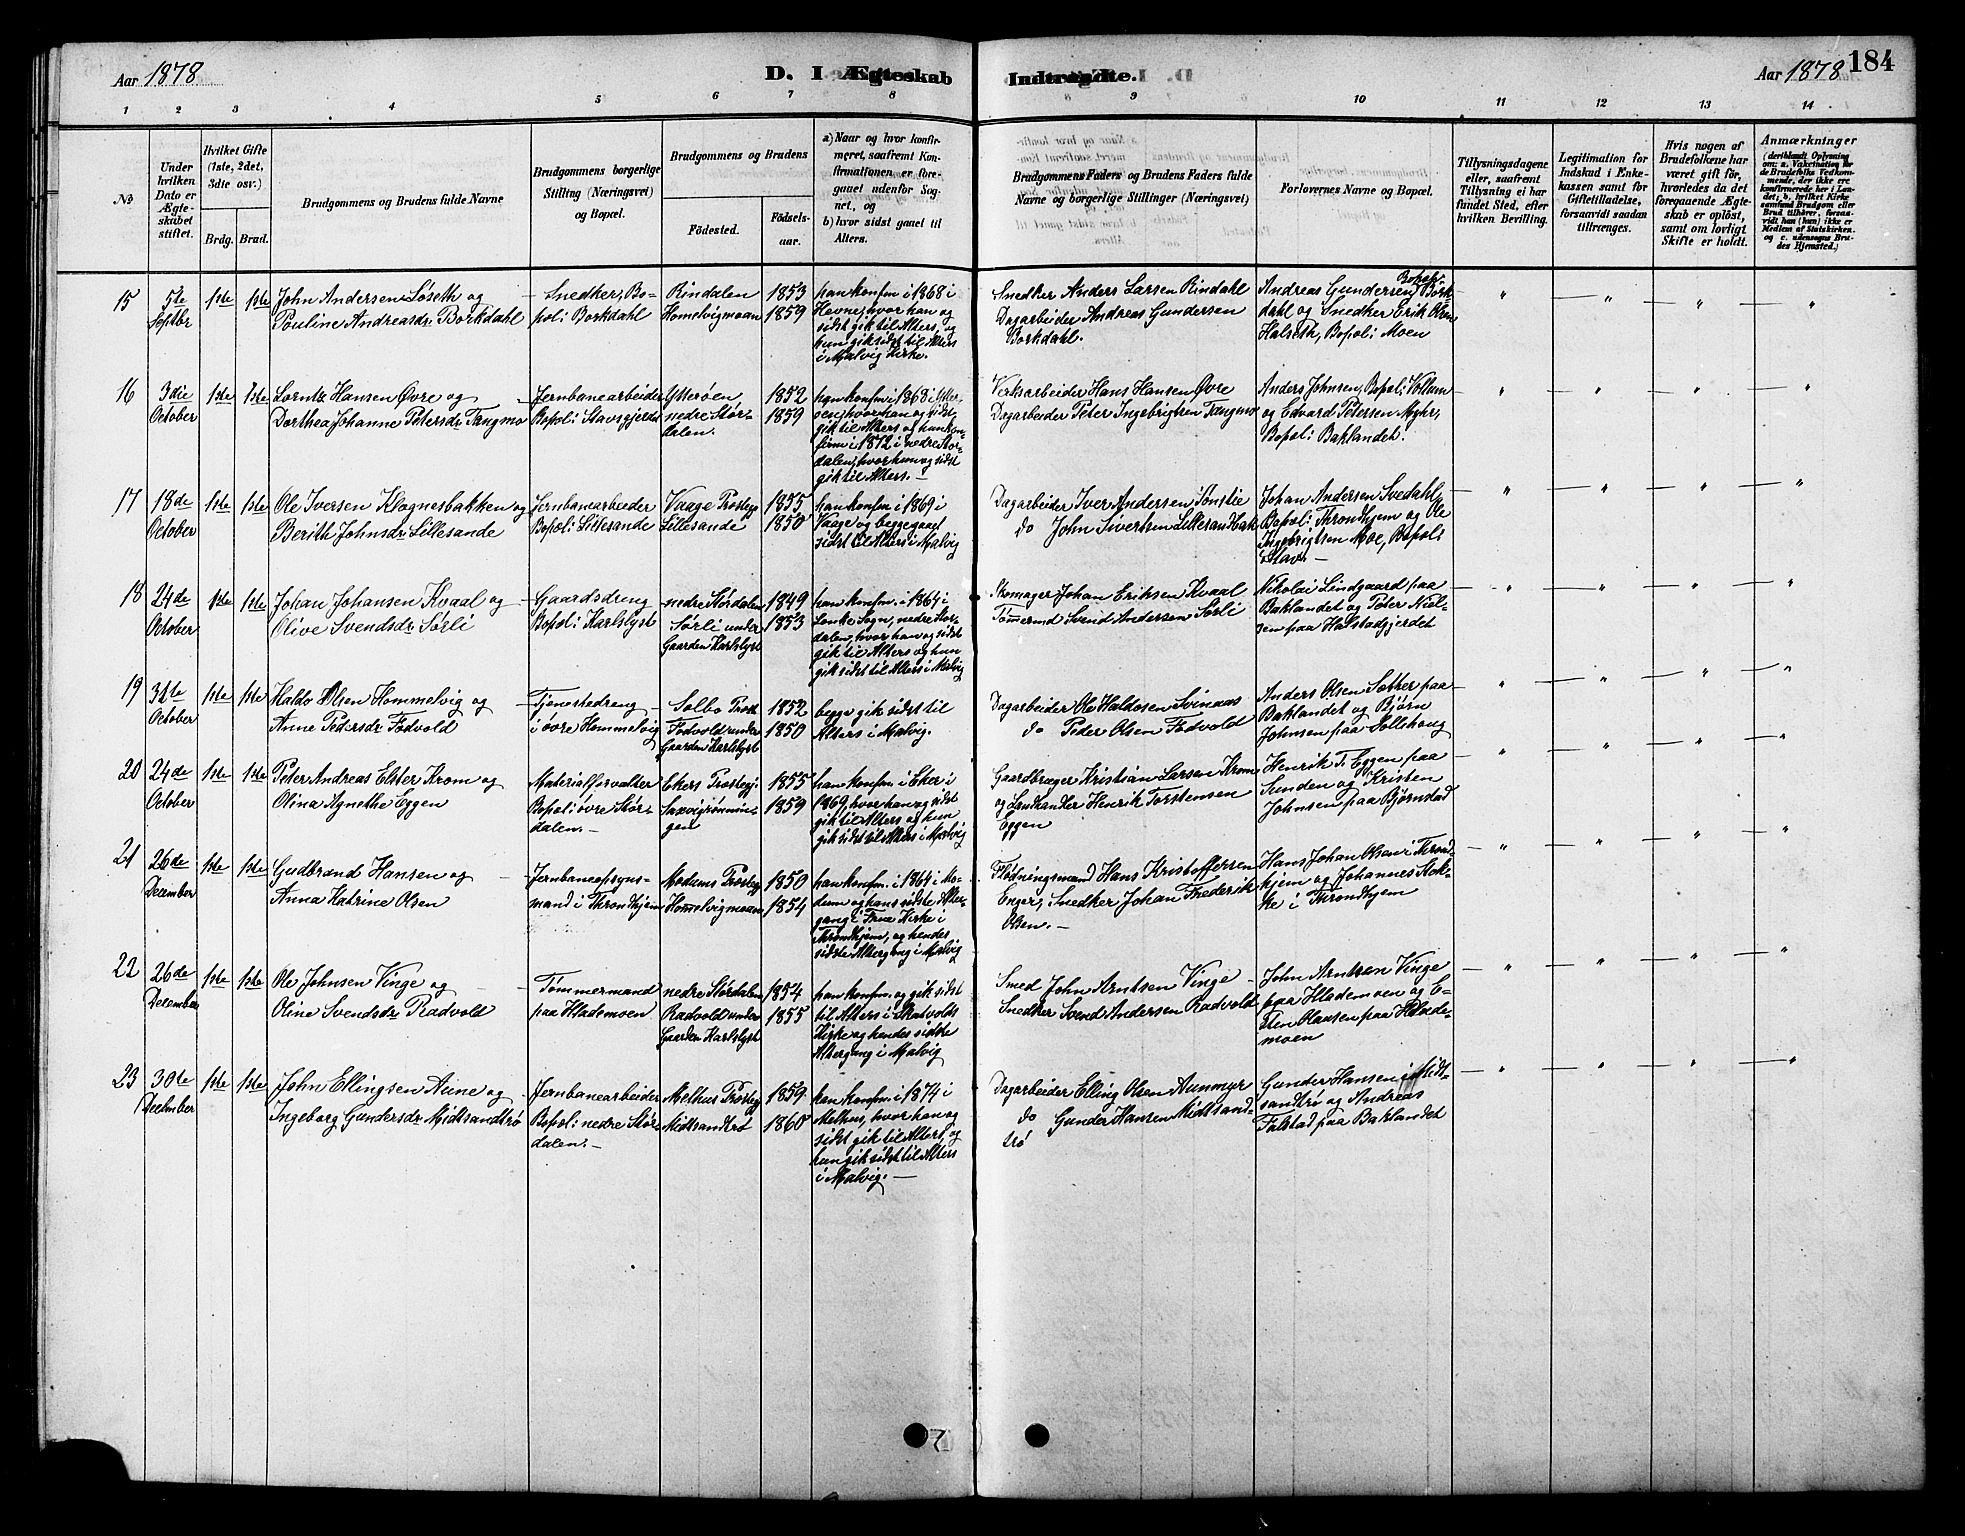 Aar 1878
D. I Ægteskab
Indtraadte.
Aar 1878
184
1 2 3 4 5 6 7 8 9 10 11 12 13 14
No
Under hvilken Dato er Ægteskabet stiftet.
Hvilket Gifte (1ste, 2det, 3die osv.)
Brdg. Brud.
Brudgommens og Brudens fulde Navne
Brudgommens borgerlige Stilling (Næringsvei) og Bopæl.
Brudgommens og Brudens
Fødested.
Fødselsaar.
a) Naar og hvor konfirmeret, saafremt Konfirmationen er foregaaet udenfor Sognet, og
b) hvor sidst gaaet til Alters.
Brudgommens Faders og Brudens Faders fulde Navne og borgerlige Stillinger (Næringsvei)
Forlovernes Navne og Bopæl.
Tillysningsdagene eller, saafremt Tillysning ei har fundet Sted, efter hvilken Bevilling.
Legitimation for Indskud i Enkekassen samt for Giftetilladelse, forsaavidt saadan tiltrænges.
Hvis nogen af Brudefolkene har været gift før, hvorledes da det foregaaende Ægteskab er opløst, samt om lovligt Skifte er holdt.
Anmærkninger
(deriblandt Oplysning om: a. Vakcination for de Brudefolks Vedkommende, der ikke ere konfirmerede her i Landet; b. hvilket Kirkesamfund Brudgom eller Brud tilhører, forsaavidt han (hun) ikke er Medlem af Statskirken, og c. udensogns Brudes Hjemsted.)
15
5te Septbr
1ste 1ste
John Andersen Løseth og
Pouline Andreasdr Borkdahl
Snedker, Bopæl: Borkdahl
Rindalen 1853
Homelvigmoan 1859
han konfm i 1868 i Hevne, hvor han og sidst gik til Alters, og hun gik sidst til Alters i Malvig Kirke.
Snedker Anders Larsen Rindahl
Dagarbeider Andreas Gundersen Borkdahl.
Andreas Gundersen Bopæl: Borkdahl og Snedker Erik Olsen Halseth, Bopæl: Moen
16
3die October
1ste 1ste
Lorntz Hansen Øvre og
Dorthea Johanne Petersdr Tangmo
Jernbanearbeider Bopæl: Stavsgjerdet
Ytterøen 1852
nedre Stördalen. 1859
han konfm i 1868 i Ytterøen, hvor han og sidst gik til Alters og hun konfirm i 1872 i nedre Stordalen, hvor hun og sidst gik til Alters.
Verksarbeider Hans Hansen Øvre
Dagarbeider Peter Ingebrigtsen Tangmo
Anders Johnsen, Bopæl: Vollum og Edvard Petersen Myhr, Bopæl: Baklandet.
17
18de October
1ste 1ste
Ole Iversen Klognesbakken og
Berith Johnsdr Lillesande
Jernbanearbeider Bopæl: Lillesande
Vaage Prostegj 1855
Lillesande 1850
han konfm. i 1869 i Vaage og begge gaaet sidst til Alters i Malvig
Dagarbeider Iver Andersen
do John Sivertsen
Johan Andersen Svedahl, Bopæl: Throndhjem og Ole Ingebrigtsen Moe, Bopæl: Stav.
18
24de October
1ste 1ste
Johan Johansen Kvaal og
Olive Svendsdr Sörli
Gaardsdreng Bopæl: Karlslyst
nedre Stördalen 1849
Sörli under Gaarden Karlslyst 1853
han konfm. i 1864 i Lanke Sogn, nedre Stordalen, hvor han og sidst gik til Alters og hun gik sidst til Alters i Malvig
Skomager Johan Eriksen Kvaal
Tömermd Svend Andersen Sörli
Nikolai Lindgaard paa Baklandet og Peter Nielsen paa Halstadgjerdet
19
31te October
1ste 1ste
Haldo Olsen Hommelvig og
Anne Pedersdr Fodvold
Tjenestedreng i övre Hommelvig
Selbo Prost 1852
Fodvold under Gaarden Karlslyst 1850
begge gik sidst til Alters i Malvig.
Dagarbeider Ole Haldosen Svinaas
do Peder Olsen Fodvold
Anders Olsen Sæther paa Baklandet og Björn Johnsen paa Sollihaug
20
24de October
1ste 1ste
Peter Andreas Elster Krom og
Olina Agnethe Eggen
Materialforvalter Bopæl: övre Stördalen.
Ekers Prostegj: 1855
Saxvigrønningen 1859
han konfm. i Eker i 1869, hvor han og sidst gik til Alters og hun gik sidst til Alters i Malvig
Gaardbruger Kristian Larsen Krom
og Landhandler Henrik Torstensen Eggen
Henrik T. Eggen paa Sunden og Kristen Johnsen paa Bjørnstad
21
26de December
1ste 1ste
Gudbrand Hansen og
Anna Katrine Olsen
Jernbaneopsynsmand i Throndhjem
Modums Prostegj 1850
Homelvigmoan 1854
han konfm. i 1864 i Modum og hans sidste Altergang i Frue Kirke i Throndhjem, og hendes sidste Altergang i Malvig
Flödningsmand Hans Kristoffersen
Enger, Snedker Johan Frederik Olsen.
Hans Johan Olsen i Throndhjem og Johannes Stokke i Throndhjem
22
26de December
1ste 1ste
Ole Johnsen Vinge og
Oline Svendsdr Radvold
Tömmermand paa Hlademoen
nedre Stördalen 1854
Radvold under Gaarden Karlslyst 1855
han konfm. og gik sidst til Alters i Skatvolds Kirke og hendes sidste Altergang i Malvig
Smed John Arntsen Vinge
Snedker Svend Andersen Radvold
John Arntsen Vinge paa Hlademoen og Esten Olausen paa Hlademoen
23
30te December
1ste 1ste
John Ellingsen Aune og
Ingeborg Gundersdr Midtsandtrø
Jernbanearbeider Bopæl: nedre Stördalen.
Melhus Prostegj 1859
Midtsandtrø 1860
han konfm. i 1874 i Melhus, hvor han og sidst gik til Alters, og hun gik sidst til Alters i Malvig.
Dagarbeider Elling Olsen Aunmyr
do Gunder Hansen Midtsandtrø
Gunder Hansen i Midtsandtrø og Andreas Falstad paa Baklandet